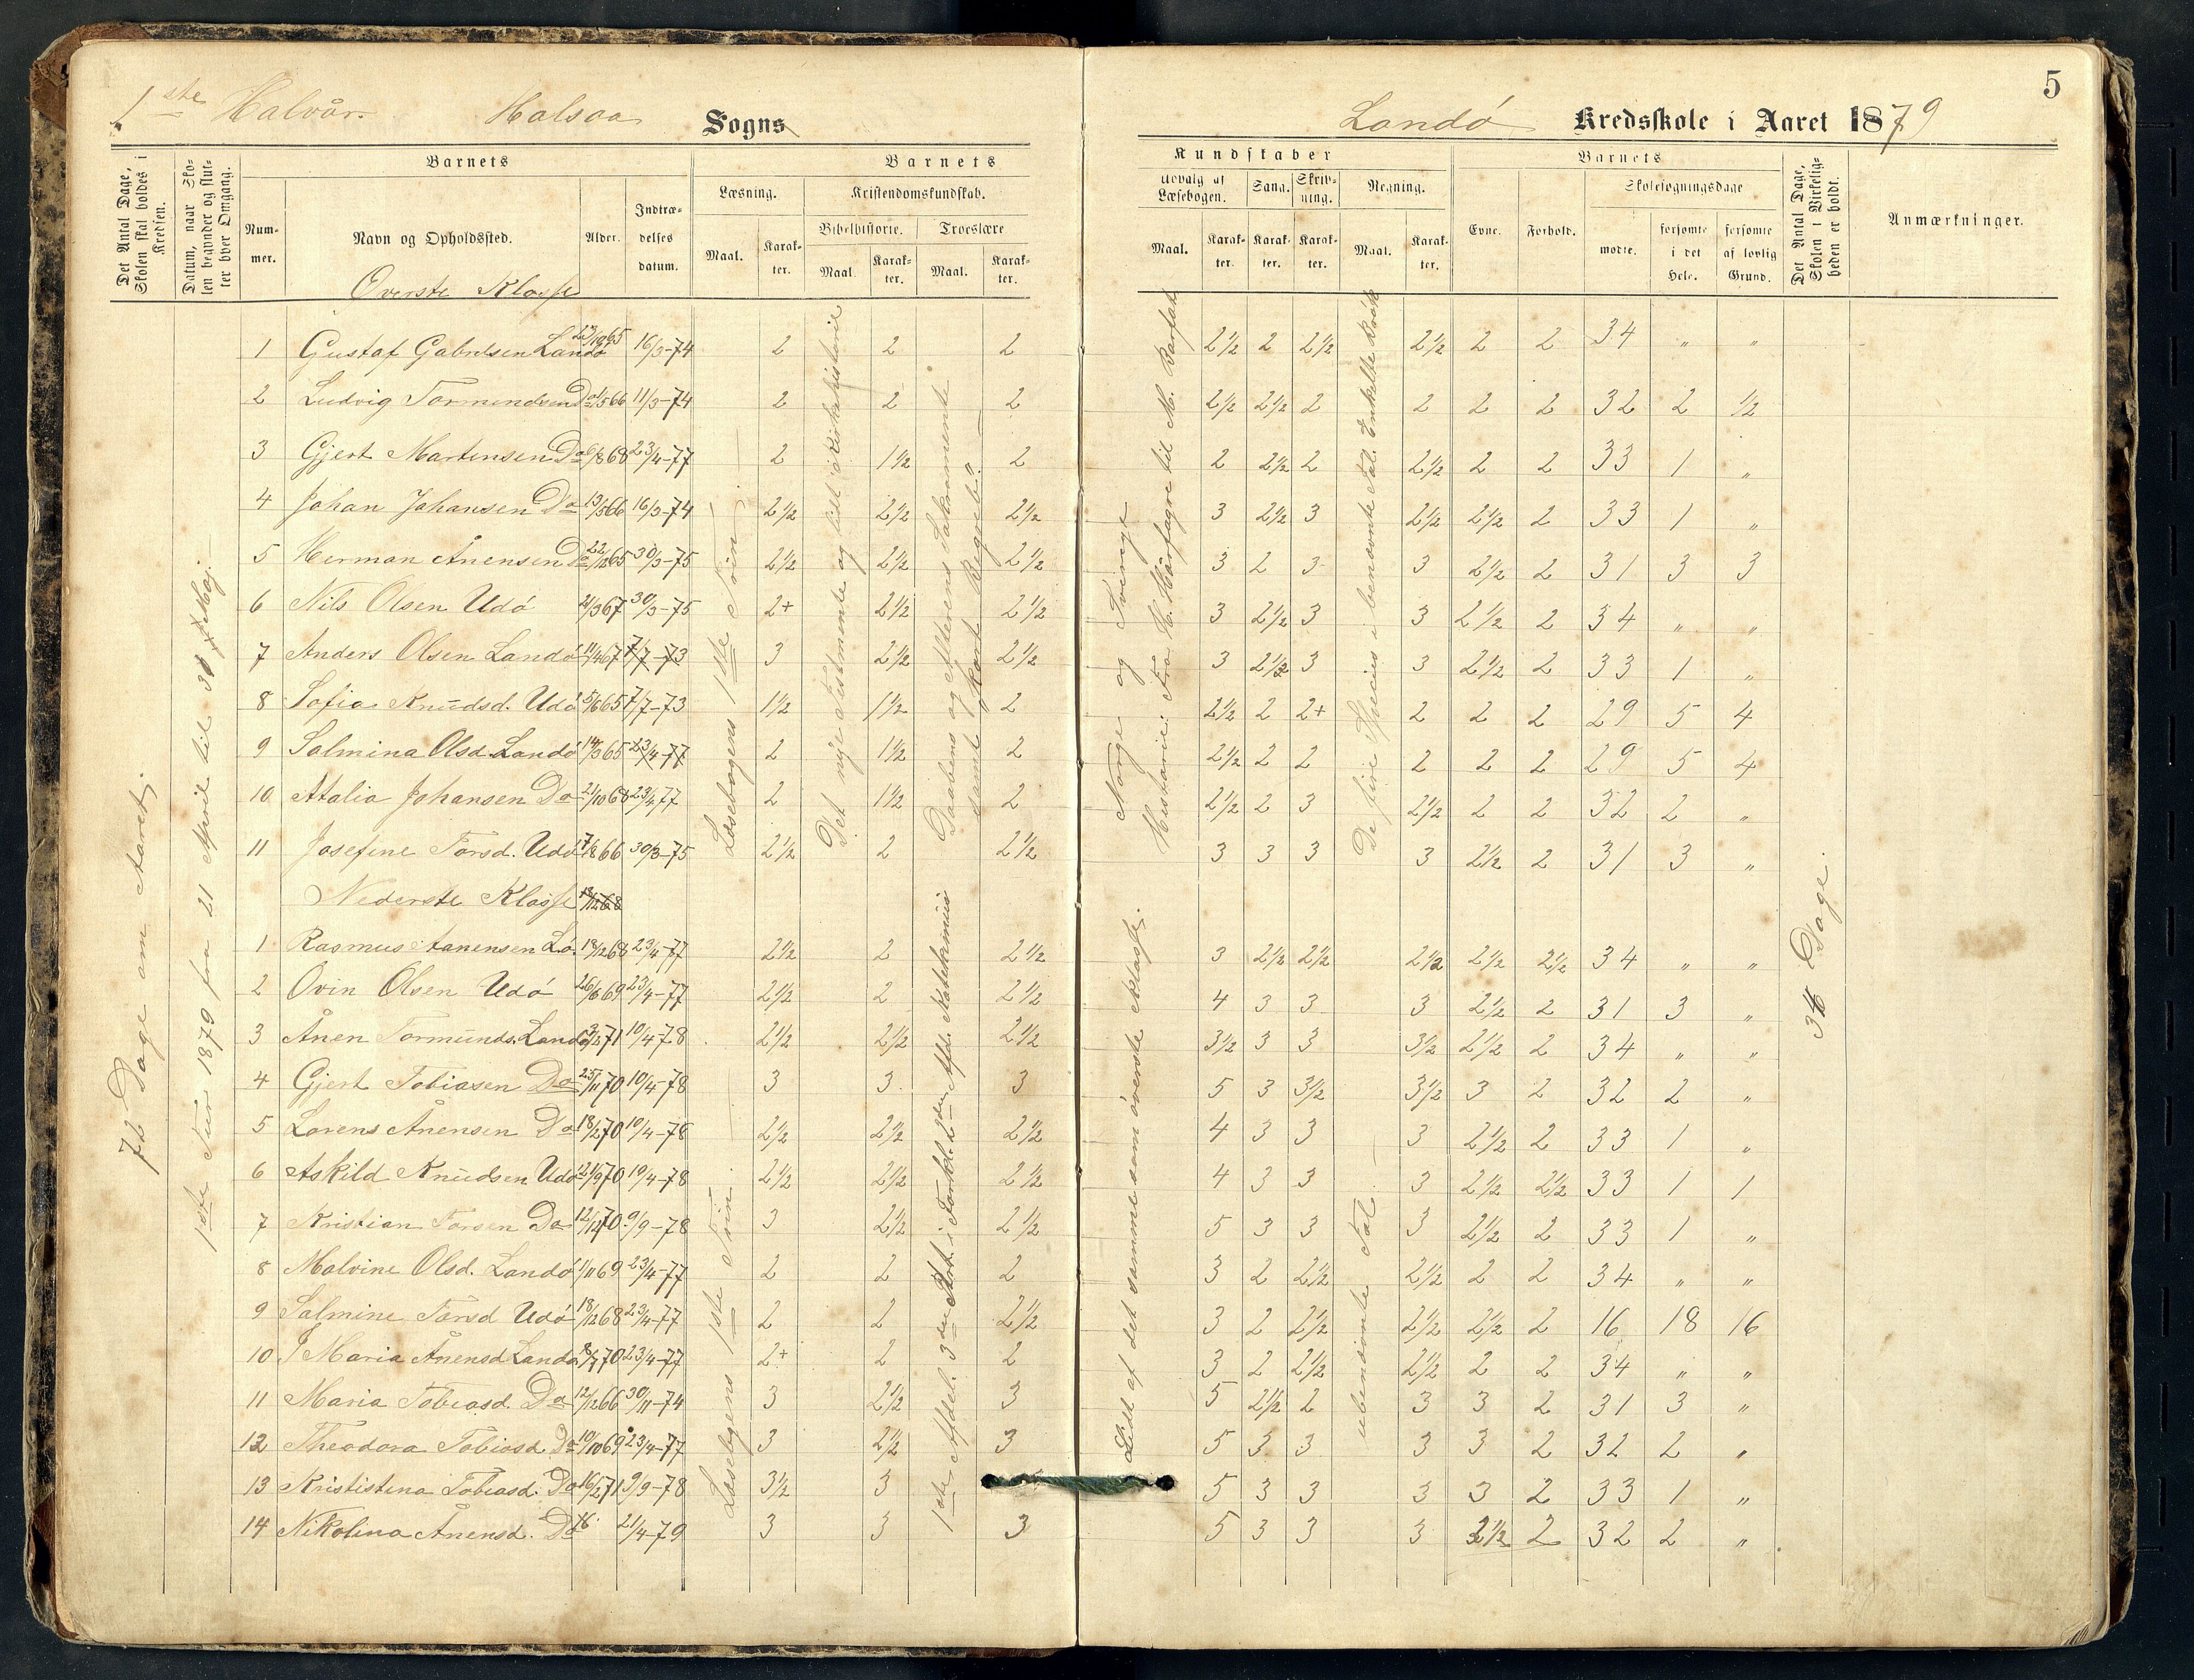 5
1ste Halvår. Halsaa Sogns
Landö Kredsskole i Aaret 1879
Det Antal Dage, Skolen skal holdes i Kredsen.
Datum, naar Skolen begynder og slutter hver Omgang.
Barnets
Nummer.
Navn og Opholdssted.
Alder.
Indtrædelses datum.
Barnets
Læsning.
Maal.
Karakter.
Kristendomskundskab.
Bibelhistorie.
Maal.
Karakter.
Troeslære
Maal.
Karakter.
Kundskaber
Udvalg af Læsebogen.
Maal.
Karakter.
Sang.
Karakter.
Skrivning.
Karakter.
Regning.
Maal.
Karakter.
Barnets
Evne.
Forhold.
Skolesøgningsdage
mødte.
forsømte i det Hele.
forsømte af lovlig Grund.
Det Antal Dage, Skolen i Virkeligheden er holdt.
Anmærkninger.
72 Dage om Aaret.
1ste Tur 1879 fra 21 April til 31 Maj.
Læsebogens 1ste Trin
Det nye Testamente og lidt Kirkehistorie
Daabens og Alterens Sakramente samt
Norge og Sverige
Historie: Fra H. Hårfagre til M. Barfod
De fire Species i benævnte Tal. Enkelte Brøk
34 Dage.
Overste Klasse
1 Gustaf Gabrelsen Landö 23/10 65 16/3-74 2 2 2 2½ 2 2½ 2½ 2 2 34 „ „
2 Ludvig Tormundsen Do 1/5 66 11/3-74 2 2 2 2½ 2½ 2 2 2 2 32 2 ½
3 Gjert Martensen Do 6/8 68 23/4-77 2 1½ 2 2 2½ 2 2½ 2 2 33 1 „
4 Johan Johansen Do 13/5 66 16/3-74 2½ 2½ 2½ 3 2½ 3 2½ 2½ 2 33 1 „
5 Herman Ånensen Do 22/12 65 30/3-75 2½ 2½ 2½ 3 2 3 3 2½ 2 31 3 3
6 Nils Olsen Udö 21/3 67 30/3-75 2+ 2½ 2½ 3 2½ 3 3 2½ 2 34 „ „
7 Anders Olsen Landö 11/4 67 7/7-73 3 2½ 2½ 3 2½ 3 3 2½ 2 33 1 „
8 Sofia Knudsd. Udö 5/6 65 7/7-73 1½ 1½ 2 2½ 2 2+ 2 2 2 29 5 4
9 Salmina Olsd Landö 14/3 65 23/4-77 2 1½ 2 2½ 2 2 2 2 2 29 5 4
10 Atalia Johansen Do 21/10 68 23/4 77 2 1½ 2 2½ 2 3 2½ 2 2 32 2 „
11 Josefine Torsd. Udö 7/8 66 30/3-75 2½ 2 2½ 3 3 3 3 2½ 2 31 3 „
Nederste Klasse
Læsebogens 1ste Trin.
Lidt af det samme som överste Klasse.
ubenævnte Tal
1 Rasmus Aanensen La. 18/12 68 23/4-77 2½ 2 2½ 3 2½ 2½ 2½ 2½ 2½ 34 „ „
2 Ovin Olsen Udö 26/6 69 23/4-77 2½ 2 2½ 4 3 3 3 2½ 2 31 3 „
3 Ånen Tormunds. Landö 3/2 71 10/4-78 2½ 2½ 2½ 3½ 3 3 3½ 2½ 2 34 „ „
4 Gjert Tobiasen Do 25/11 70 10/4-78 3 3 3 5 3 3½ 3½ 3 2 32 2 „
5 Lorens Ånensen Do 18/2 70 10/4-78 2½ 2½ 2½ 4 3 3 3 2½ 2 33 1 „
6 Askild Knudsen Udö 21/9 70 10/4-78 2½ 2½ 2½ 4 3 3 3 2½ 2½ 33 1 1
7 Kristian Torsen Do 12/12 70 9/9-78 3 2½ 2½ 5 3 3 3 2½ 2 33 1 „
8 Malvine Olsd. Landö 1/11 69 23/4-77 2 2 2 3 2 2½ 2½ 2 2 34 „ „
9 Salmine Torsd Udö 18/12 68 23/4-77 2 2 2½ 3 2 2½ 2½ 2½ 2 16 18 16
10 J Maria Ånensd Landö 8/7 70 23/4-77 2+ 2 2 3 2 2½ 2½ 2 2 34 „ „
11 Maria Tobiasd. Do 12/12 66 30/11-74 3 2½ 3 5 2½ 2 3 3 2 31 3 „
12 Theodora Tobiasd. Do 10/10 69 23/4-77 3 2½ 3 5 3 3 3 3 2 32 2 „
13 Krististina Tobiasd. Do 16/2 71 9/9-78 3½ 3 5 3 3 3 3 2 33 1 „
14 Nikolina Ånensd. Do 16 21/4-79 3 3 3 5 3 3 3 2½ 2 32 2 „